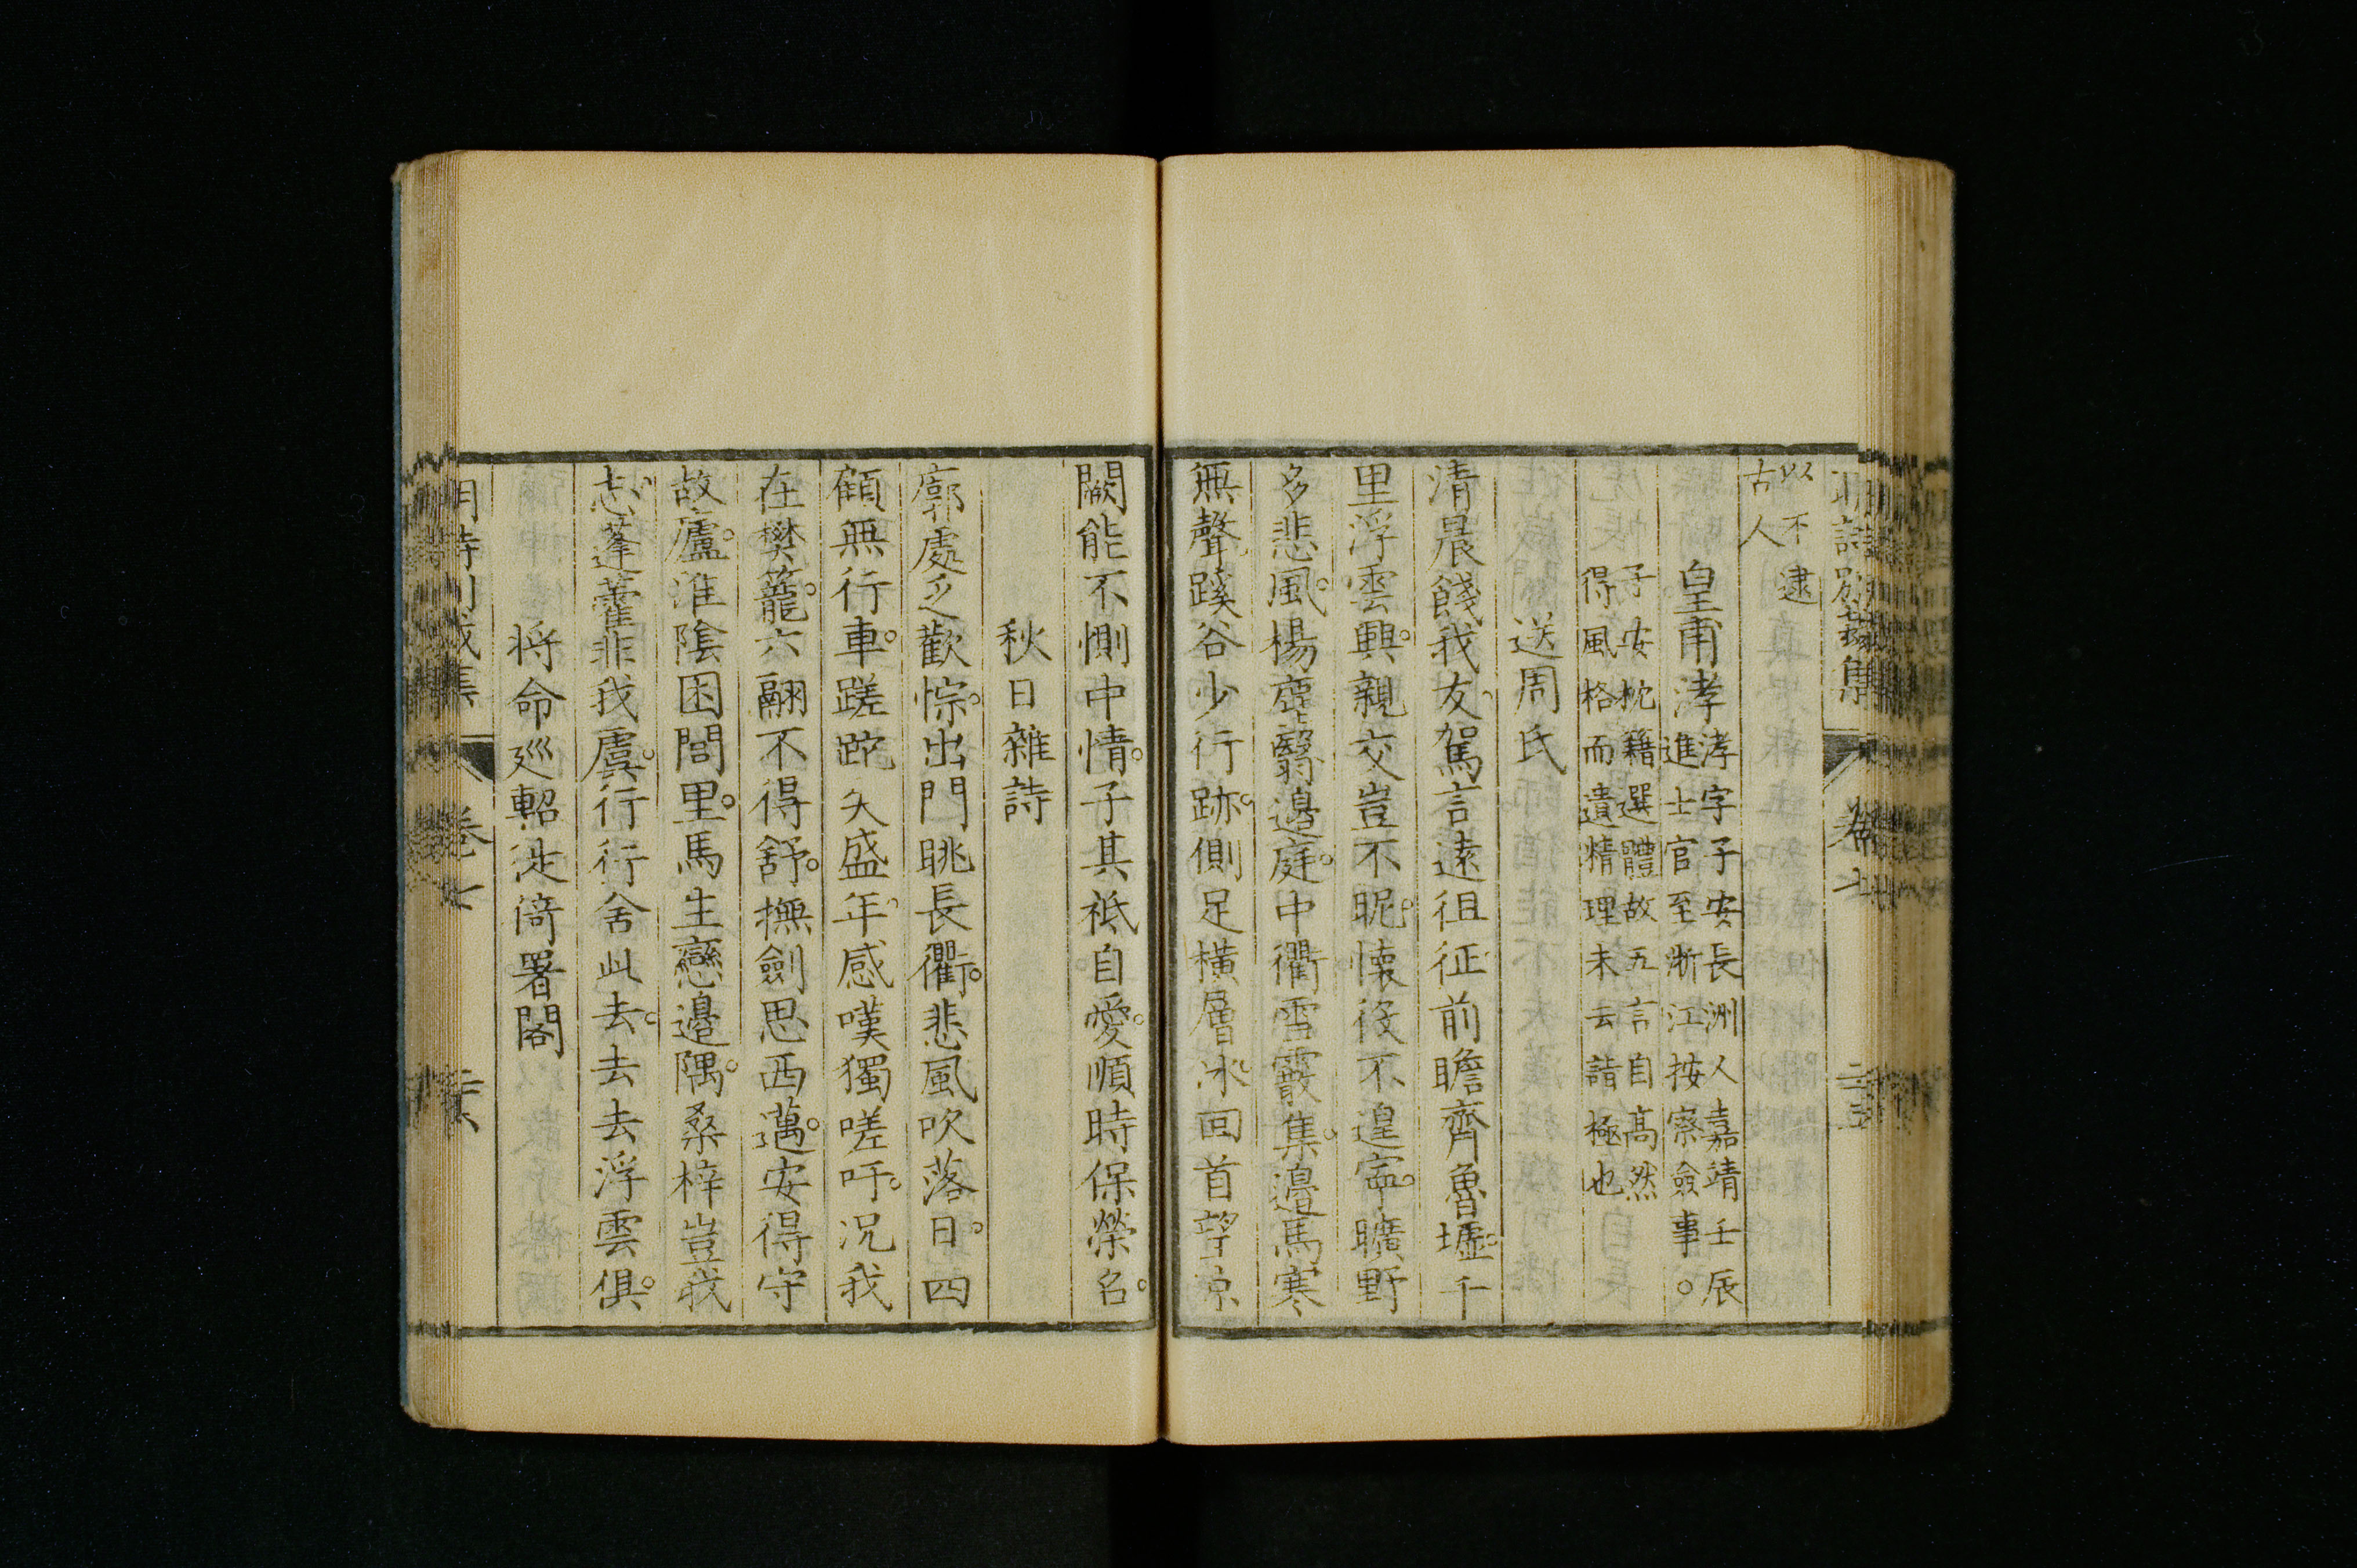 明詩別裁集 卷七 二十五
以不逮
古人
皇甫涍 涍字子安長洲人嘉靖壬辰
進士官至浙江按察僉事。
子安枕籍選體故五言自高然
得風格而遺精理未云詣極也
送周氏
清晨餞我友。駕言遠徂征前瞻齊魯墟。千
里浮雲興。親交豈不昵。懷役不遑寧。曠野
多悲風。楊塵翳邉庭。中衢雪霰集。邉馬寒
無聲蹊谷少行跡。側足橫層冰。回首望京
闕能不惻中情。子其祗自愛。順時保榮名。
秋日雜詩
廓處乏歡悰。出門眺長衢。悲風吹落日。四
顧無行車。蹉跎失盛年。感嘆獨嗟吁。况我
在樊籠。六翮不得舒。撫劍思西邁。安得守
故廬。淮陰困閭里。馬生戀邉隅。桑梓豈我
志蓬藋非我虞。行行舍此去。去去浮雲俱。
将命廵軺泚漪署閣
明詩別裁集 卷七